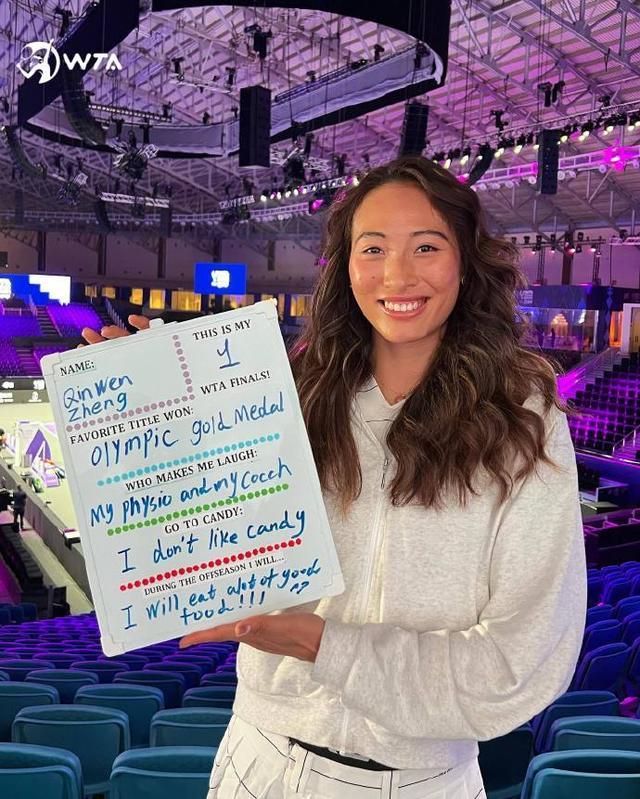 WTA
NAME:
THIS IS MY
QinWen
1
Zheng
WTA FINALS!
FAVORITE TITLE WON:
Olympic gold Medal
WHO MAKES ME LAUGH:
My physio and my Cocch
GO TO CANDY:
I don't like candy
DURING THE OFFSEASON I WILL...
I will eat alot of good
food!!! ^^